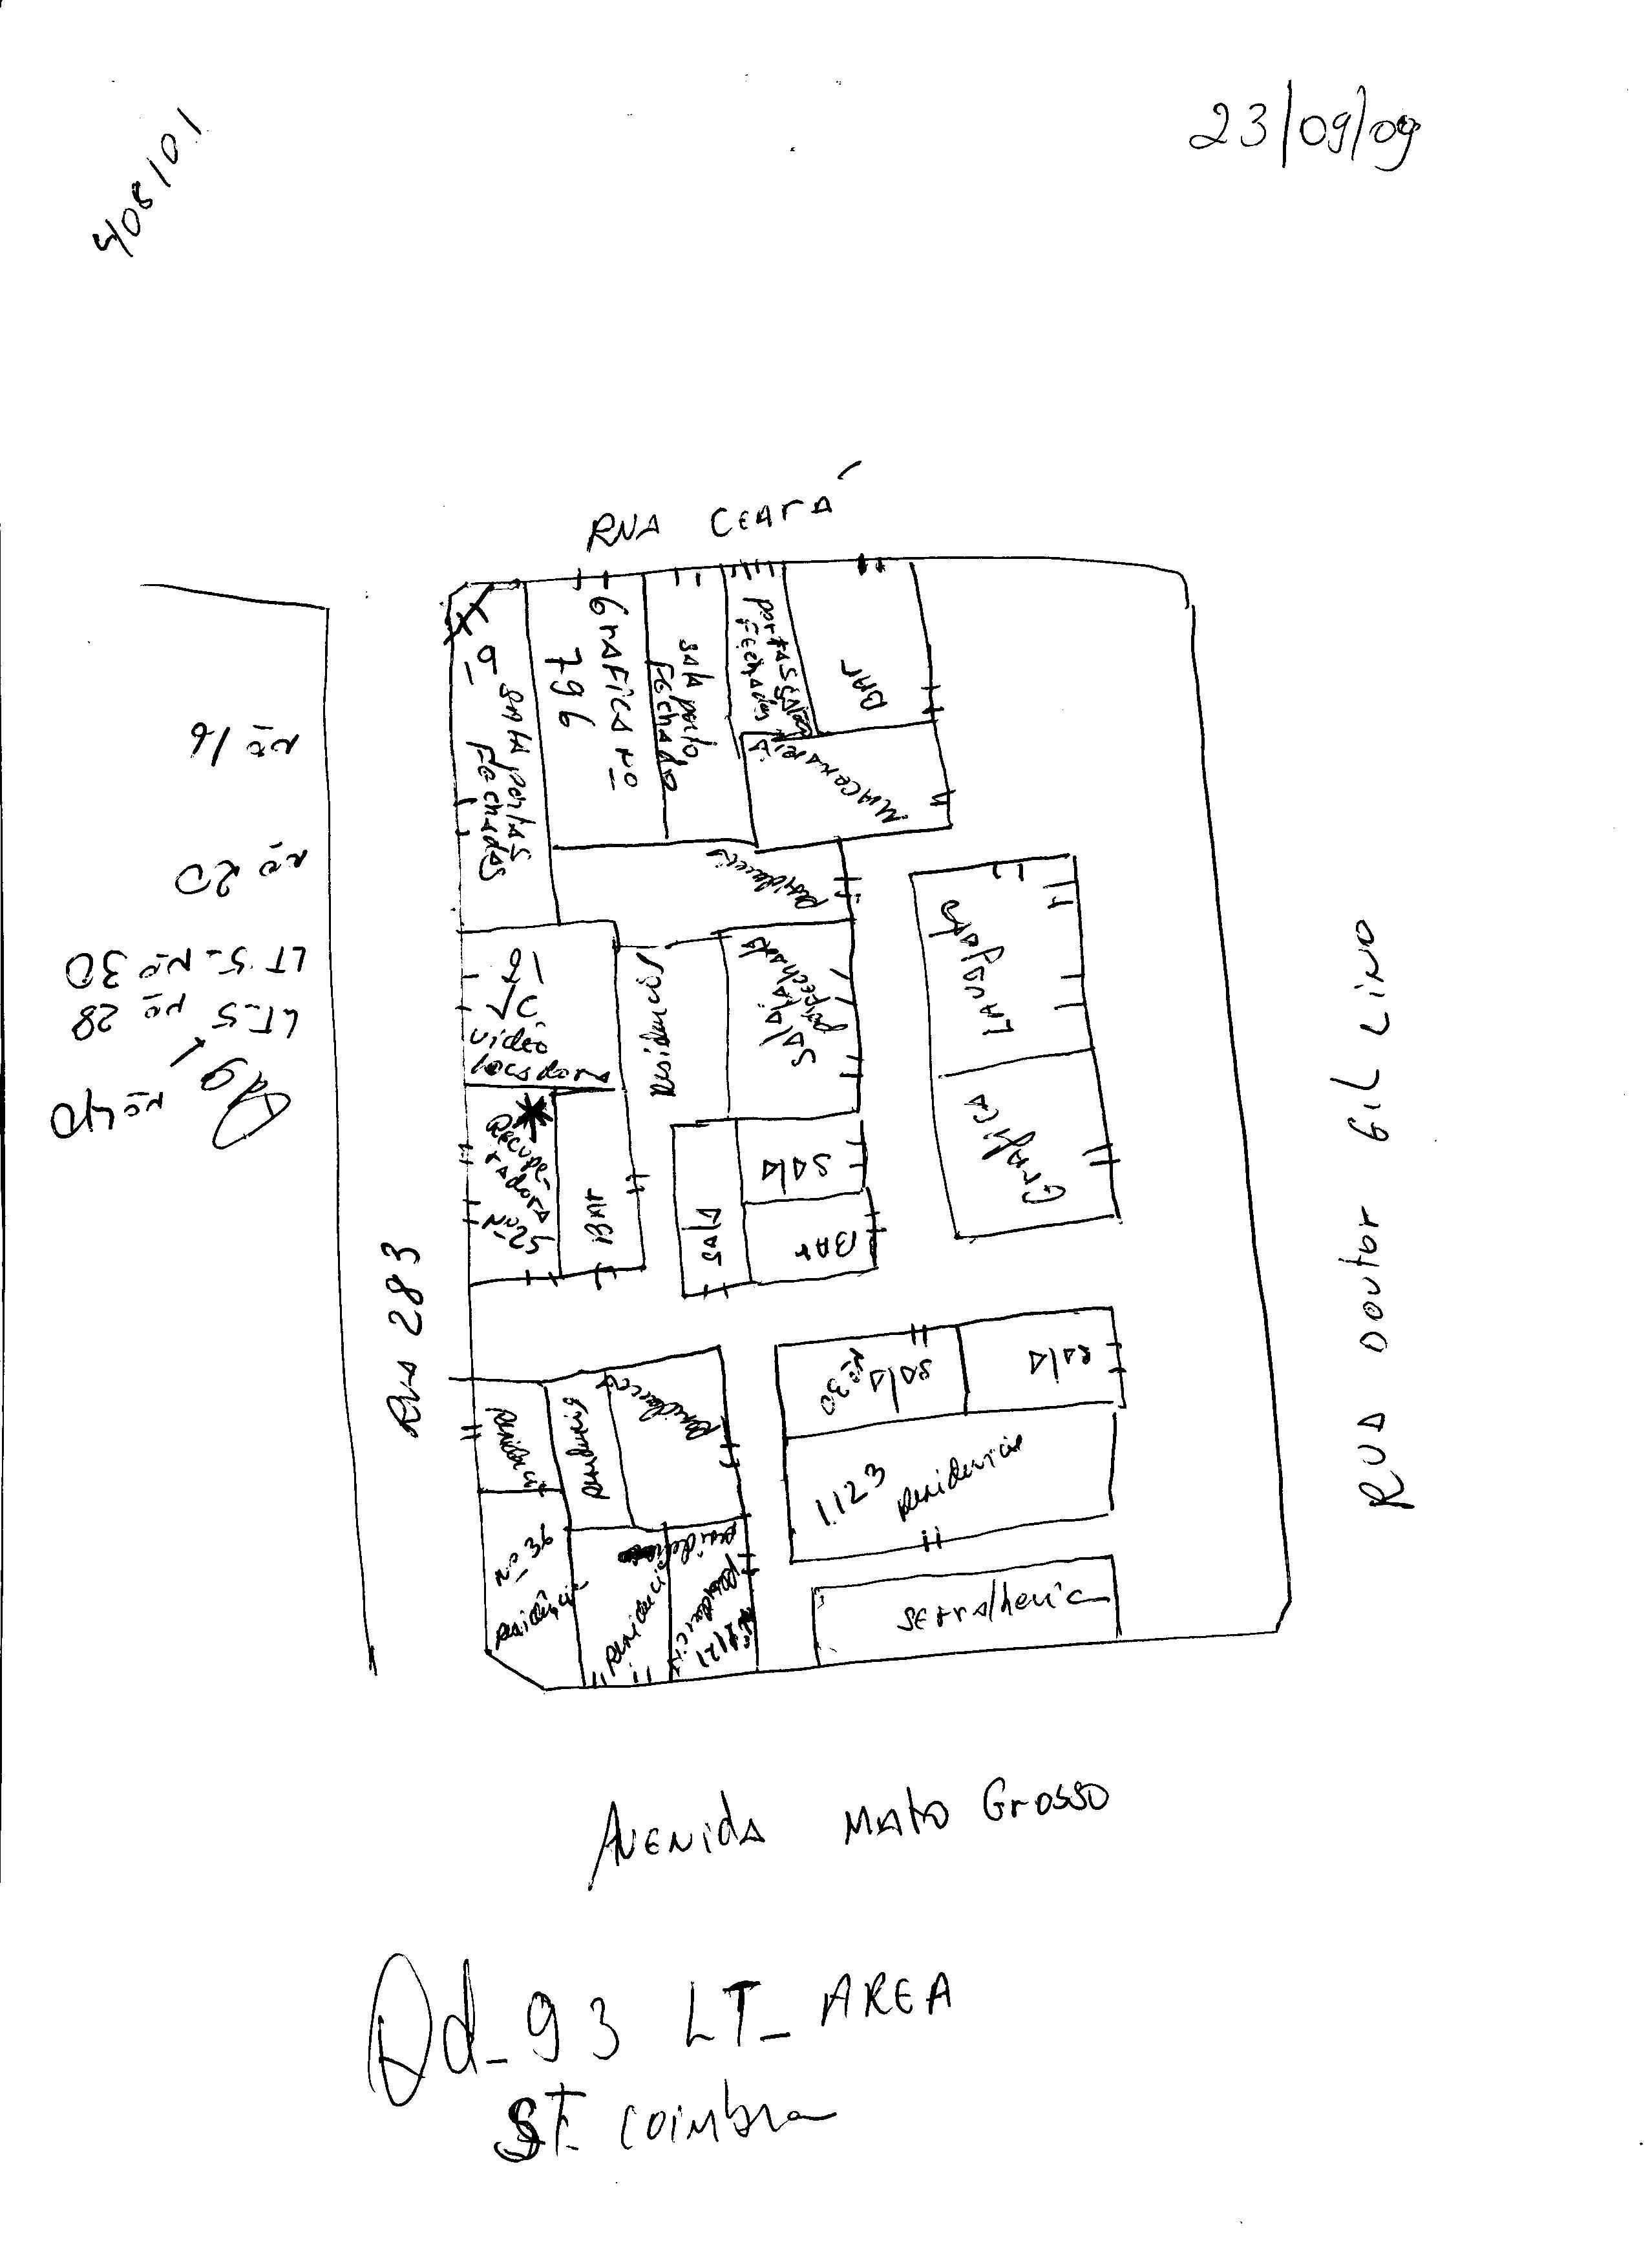 23/09/09
RUA CEARÁ
SALA portAS
FEchadas
GrAFICA Nº
796
sala porto
FEchado
portAS
FEchadas
BAr
residencia
nº 16
nº 20
LT 5- Nº 30
LT-5 nº 28
nº 40
Qd
video
locadora
Residencia
SALA
fechada
LAVAJAto
GrAficA
RECUPE-
rAdorA
Nº 25
BAr
SALA
SALA
BAr
RUA 283
RUA DOUTOR GIL LINO
residencia
residencia
residencia
Nº 36
residência
residencia
residencia
residencia
Nº 30
SALA
SALA
1123 residencia
serralheria
AVENIDA MATO GROSSO
Qd_93 LT_ AREA
ST. COIMbra